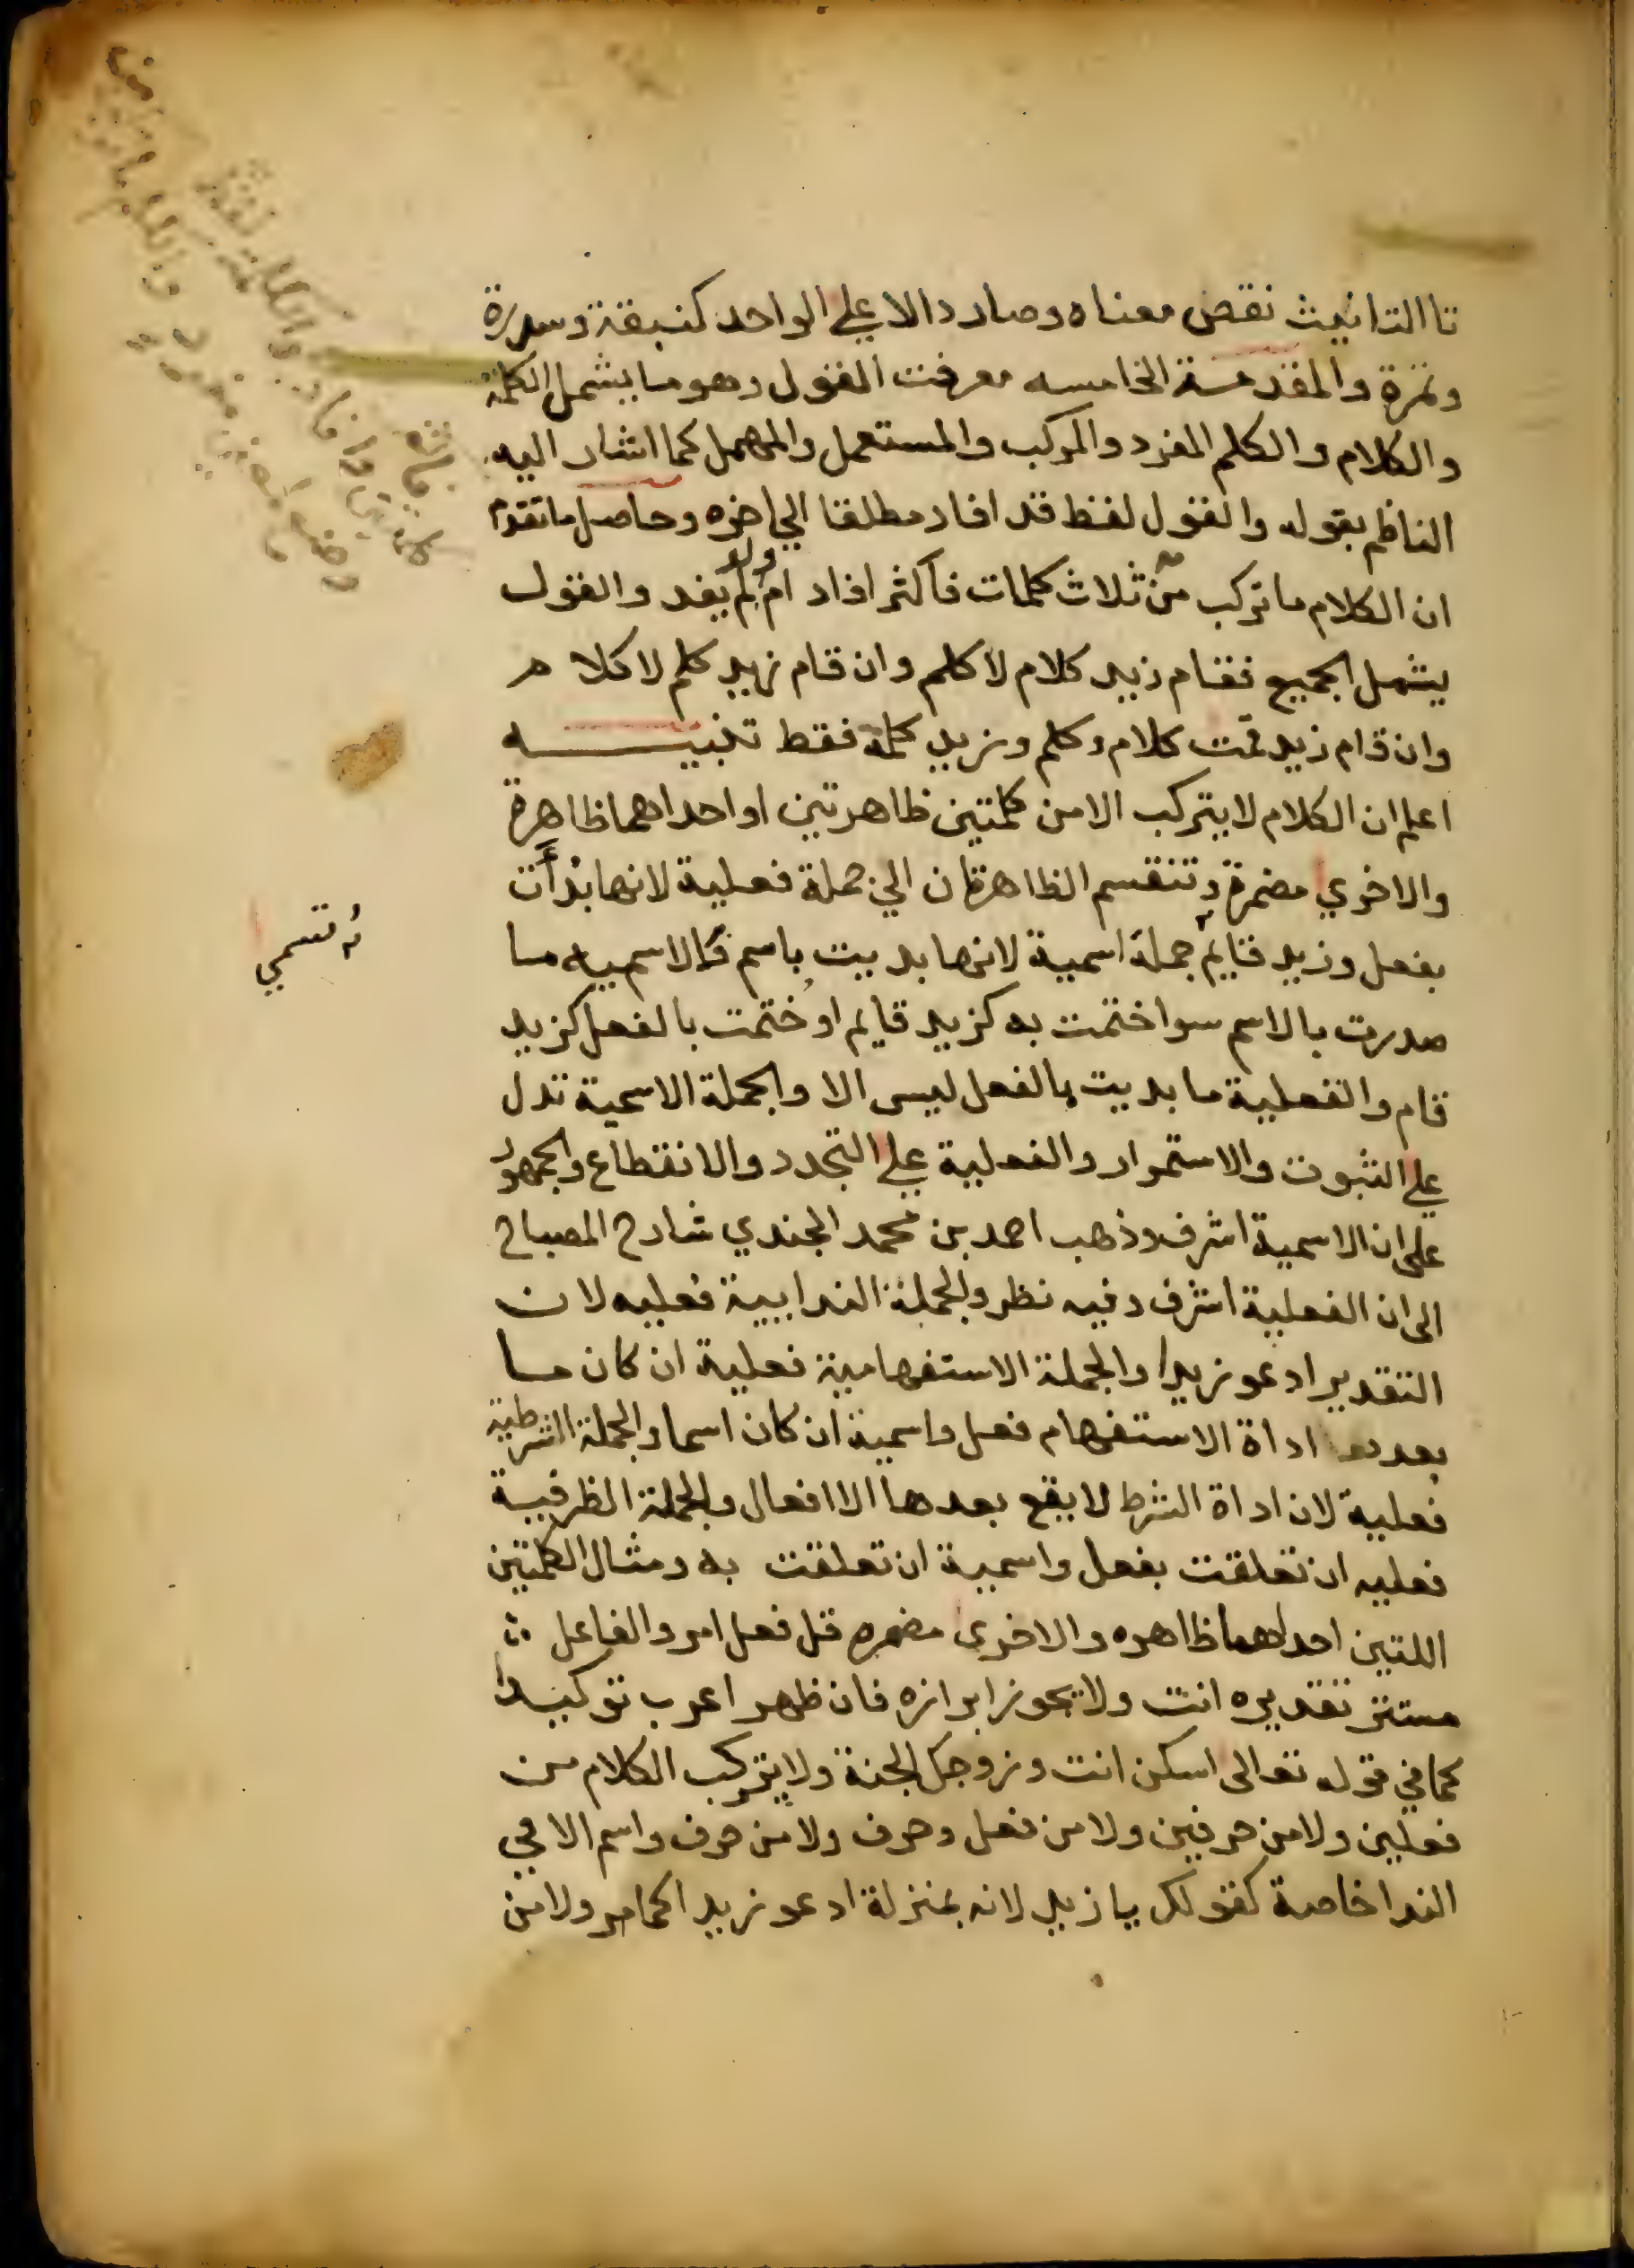 تا التانيث نقص معناه وصار دالا علي الواحد كنبقة وسدرة
وتمرة والمقدمة الخامسه معرفت القول وهو ما يشمل الكلمة
والكلام والكلم المفرد والمركب والمستعمل والمهمل كما اشار اليه
الناظم بقوله والقول لفظ قد افاد مطلقا الي اخره وحاصل ما تقدم
ان الكلام ما تركب من ثلاث كلمات فاكثر افاد ام لم يفد والقول
يشمل الجميع فقام زيد كلام لا كلم وان قام زيد كلم لا كلام
وان قام زيد قمت كلام وكلم وزيد كلمة فقط تنبيه
اعلم ان الكلام لا يتركب الا من كلمتين ظاهرتين او احداهما ظاهرة
والاخري مضمرة وتنقسم الظاهرتان الي جملة فعلية لانها بدأت
بفعل وزيد قايم جملة اسمية لانها بديت باسم فالاسميه ما
صدرت بالاسم سوا ختمت به كزيد قايم او ختمت بالفعل كزيد
قام والفعلية ما بديت بالفعل ليس الا والجملة الاسمية تدل
علي الثبوت والاستمرار والفعلية علي التجدد والانقطاع والجمهور
على ان الاسمية اشرف وذهب احمد بن محمد الجندي شارح المصباح
الى ان الفعلية اشرف وفيه نظر والجملة الندايية فعليه لان
التقدير ادعو زيدا والجملة الاستفهامية فعلية ان كان ما
بعد اداة الاستفهام فعل واسمية ان كان اسما والجملة الشرطية
فعلية لان اداة الشرط لا يقع بعدها الا افعال والجملة الظرفية
فعليه ان تعلقت بفعل واسمية ان تعلقت به ومثال الكلمتين
اللتين احداهما ظاهره والاخرى مضمره قل فعل امر والفاعل
مستتر تقديره انت ولا يجوز ابرازه فان ظهر اعرب توكيدا
كما في قوله تعالى اسكن انت وزوجك الجنة ولا يتركب الكلام من
فعلين ولا من حرفين ولا من فعل وحرف ولا من حرف واسم الا في
الندا خاصة كقولك يا زيد لانه بمنزلة ادعو زيدا كما مر ولا من
تسمي